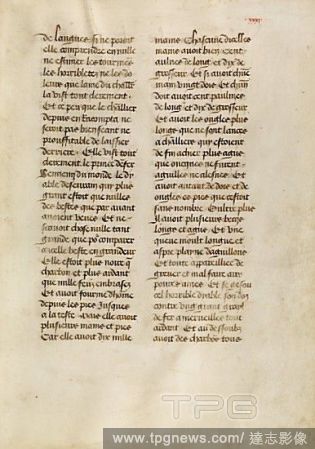 de langues. si ne poroit
elle comprendre en nulle
ne estimer les tourmēs
les horribletez ne les do
leurs que lame du chālr
la vist tout clerement.
Et ce peu que le chlīer
depuis en racompta ne
seroit pas bien seant ne
prouffitable de laissier
derriere. Elle vist tout
clerement le prince de fer
du monde. le dy
able denfer qui plus
grant estoit que nulles
des bestes que par avant
avoient veues. Et ne
scavoit chose nulle tant
grande que po comparer
a celle beste en grandeur
Elle estoit plus noire q̄
charbon et plus ardant
que nulle feu embrase.
Et avoit fourme dhōme
depuis les piez Jusques
a la teste. Mais elle avoit
plusieurs mains et piez
Car elle avoit dix mille
mains. Chascune dicelles
mains avoit bien cent
aulnes de long et dix de
grosseur. Et si avoit chūne
main vingt dois. Et chūn
doit avoit cent paulmes
de long et dix de grosseur
Et avoit les ongles plus
longs que ne sont lances
a chlīers qui estoient
de fin achier plus agus
que oncques ne furent
aguilles ne alesnes. Et
avoit autant de dois et de
ongles es piez que cestoit
sans nombre. Oultre plus
Il avoit plusieurs becqs
longs et agus. Et une
queue moult longue et
aspre plaine daguillons
Et toute appareillie de
grever et mal faire aux
povres ames. Et se gesoit
cel horrible dyable son dos
contre ung grant groyl
de fer a merveilles tout
ardant. Et au dessoubz
avoit des charbōs tous
TPG
www.tpgnews.com/達志影像